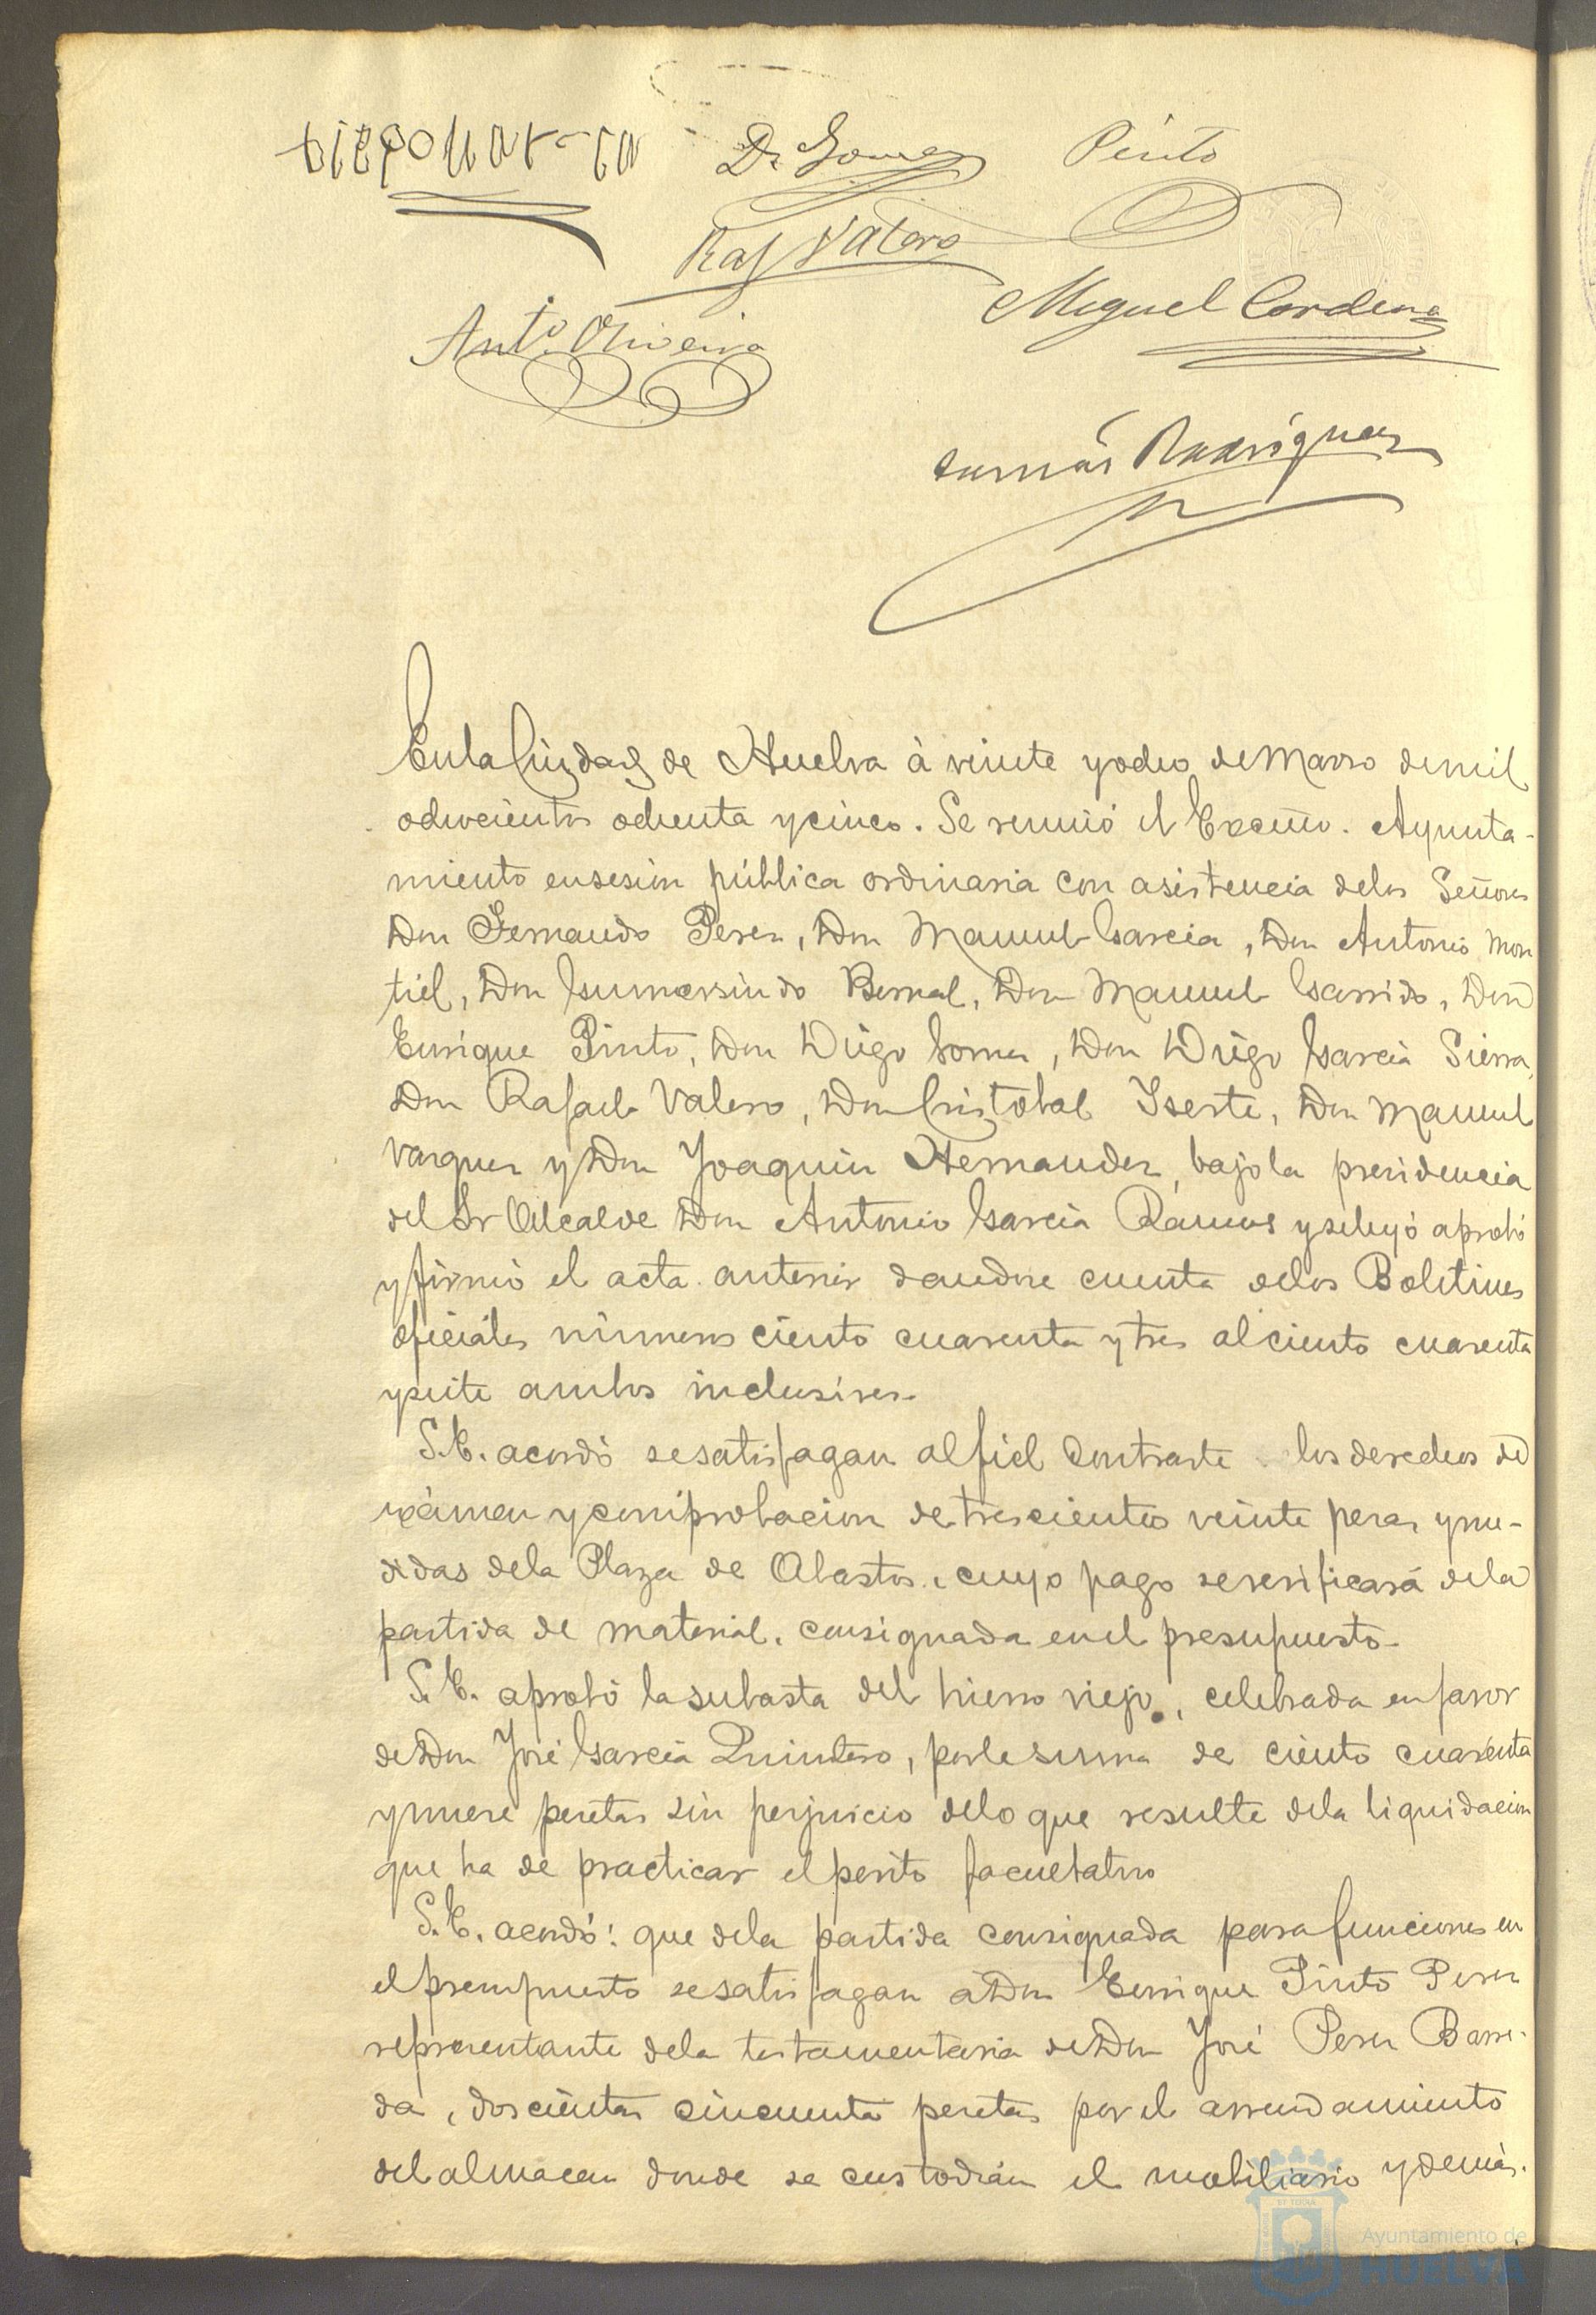 D. Gomez Pinto
Raf Valero
Miguel Cordero
Antº. Oliveira
Tomás Rodriguez
En la Ciudad de Huelva à veinte y ocho de Marzo de mil
ochocientos ochenta y cinco. Se reunió el Excmo. Ayunta-
miento en sesion pública ordinaria con asistencia de los Señores
Don Fernando Perez, Don Manuel Garcia, Don Antonio Mon
tiel, Don Gumersindo Bernal, Don Manuel Garrido, Don
Enrique Pinto, Don Diego Gomez, Don Diego Garcia Sierra,
Don Rafael Valero, Don Cristobal Yserte, Don Manuel
Vazquez y Don Joaquin Hernandez, bajo la presidencia
del Sr Alcalde Don Antonio Garcia Ramos y se leyó aprobó
y firmó el acta anterior dandose cuenta de los Boletines
oficiales números ciento cuarenta y tres al ciento cuarenta
y siete ambos inclusives.
S. E. acordó se satisfagan al fiel Contraste los derechos de
exàmen y comprobacion de trescientos veinte pesas y me-
didas de la Plaza de Abastos, cuyo pago se verificará de la
partida de material, consignada en el presupuesto.
S. E. aprobó la subasta del hierro viejo, celebrada en favor
de Don José Garcia Quintero, por la suma de ciento cuarenta
y nueve pesetas sin perjuicio de lo que resulte de la liquidacion
que ha de practicar el perito facultativo
S. E. acordó: que de la partida consignada para funciones en
el presupuesto se satisfagan à Don Enrique Pinto Perez
representante de la testamentaria de Don José Perez Barre-
da, doscientas cincuenta pesetas por el arrendamiento
del almacen donde se custodian el mobiliario y demás.
Ayuntamiento de
HUELVA